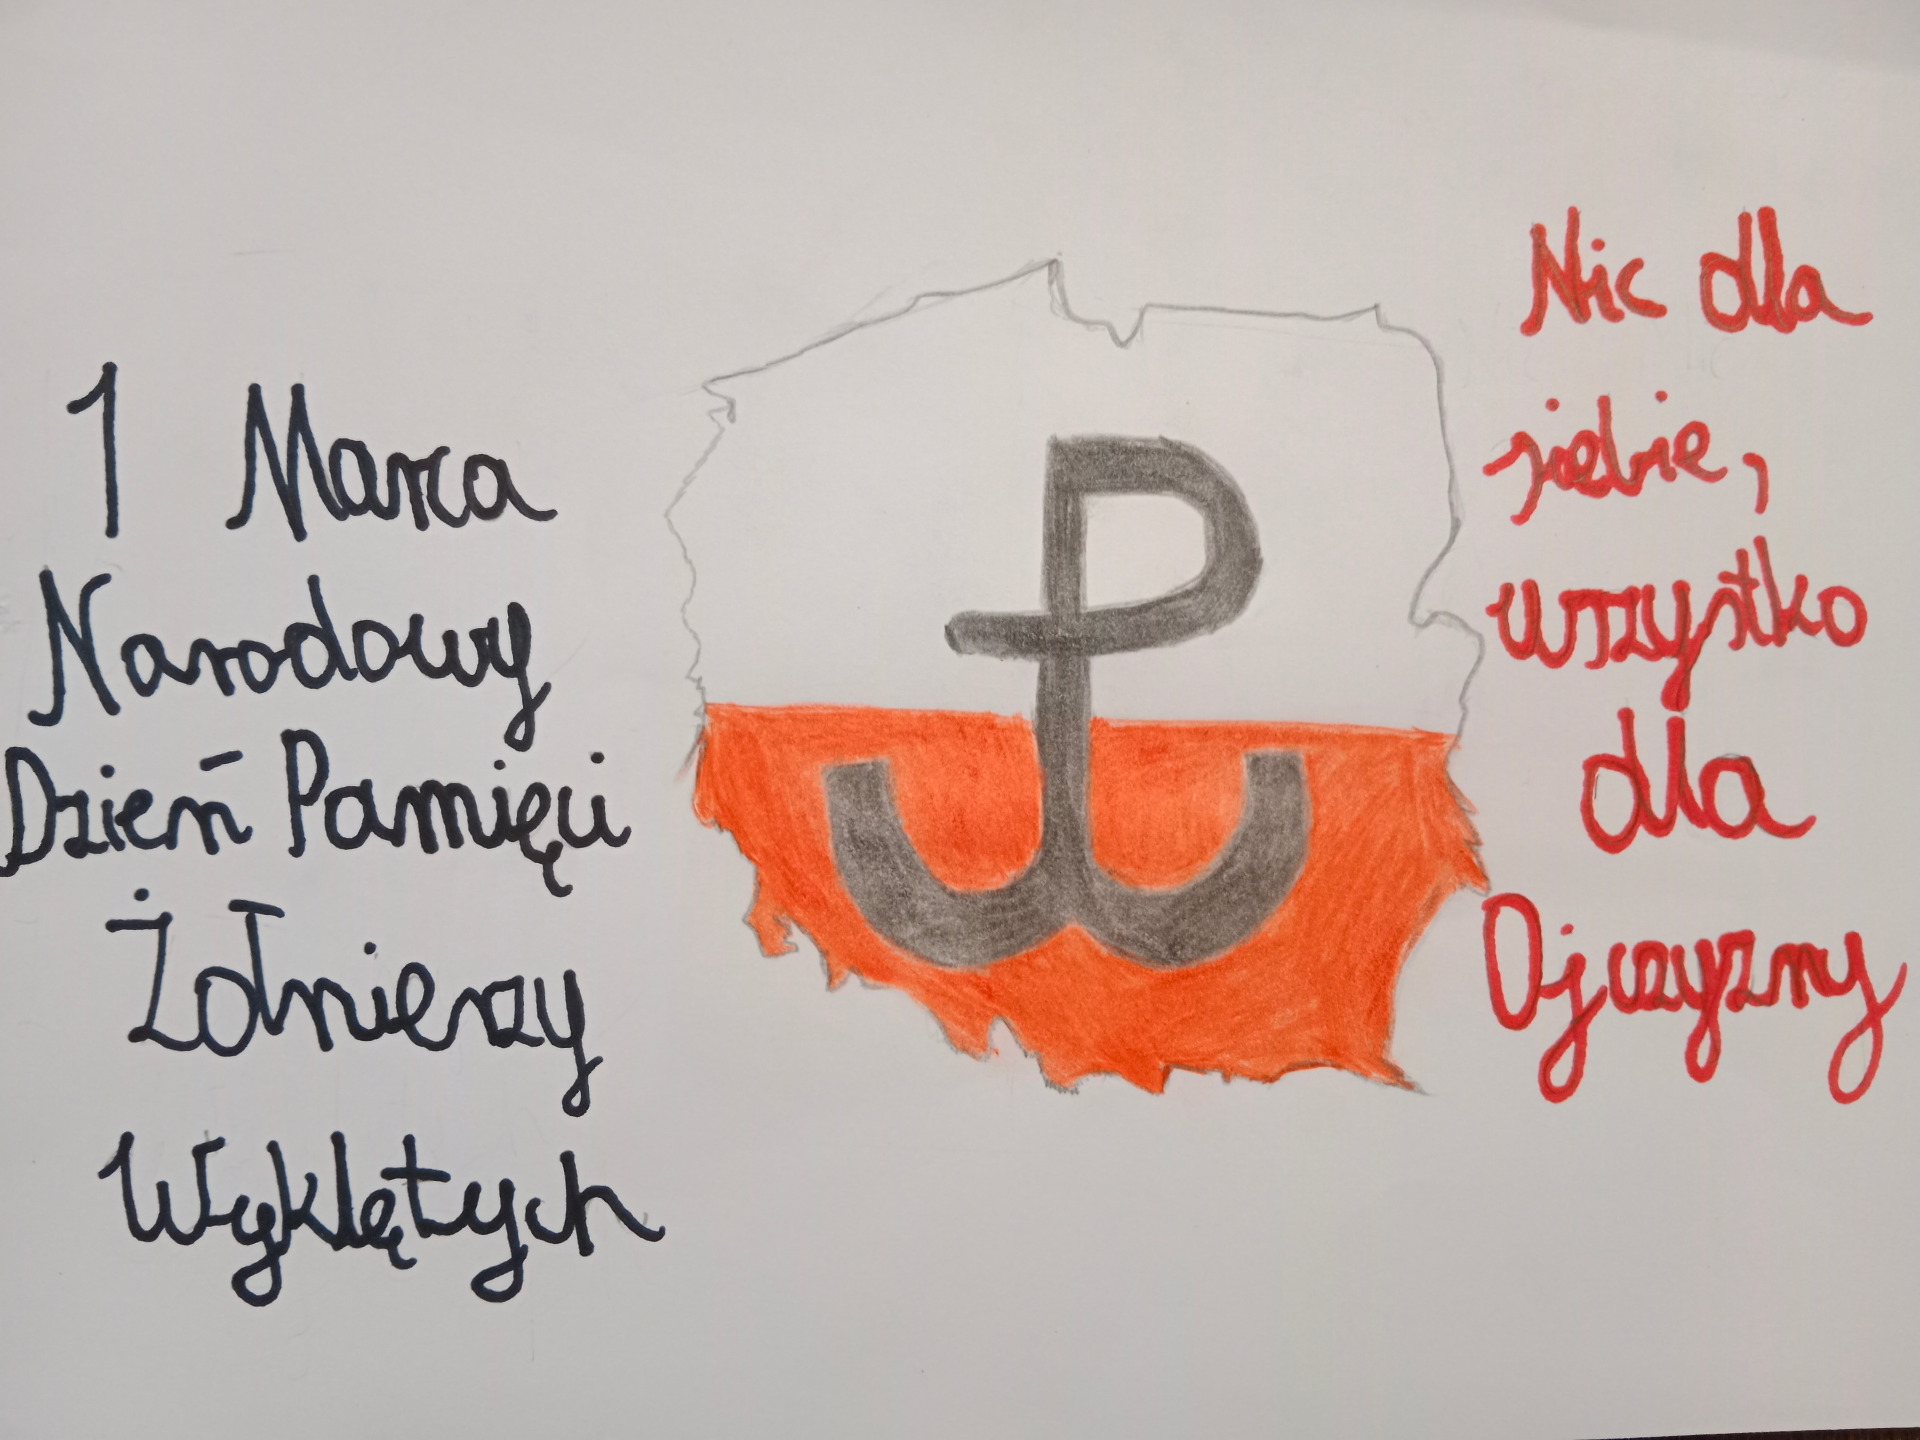 1 Marca
Narodowy
Dzień Pamięci
Żołnierzy
Wyklętych
Nic dla
siebie,
wszystko
dla
Ojczyzny